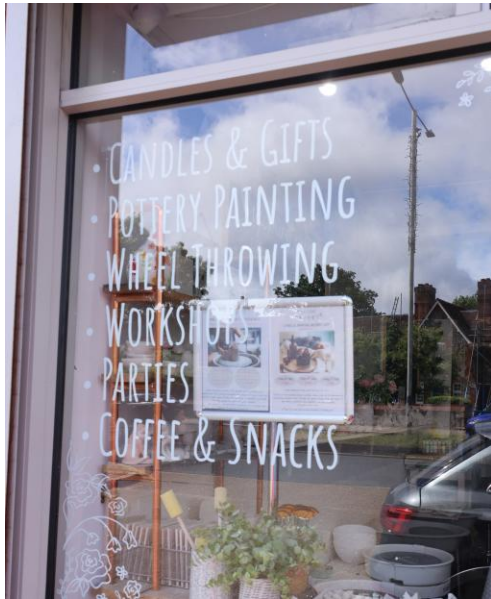 • CANDLES & GIFTS
• POTTERY PAINTING
• WHEEL THROWING
• WORKSHOPS
• PARTIES
• COFFEE & SNACKS